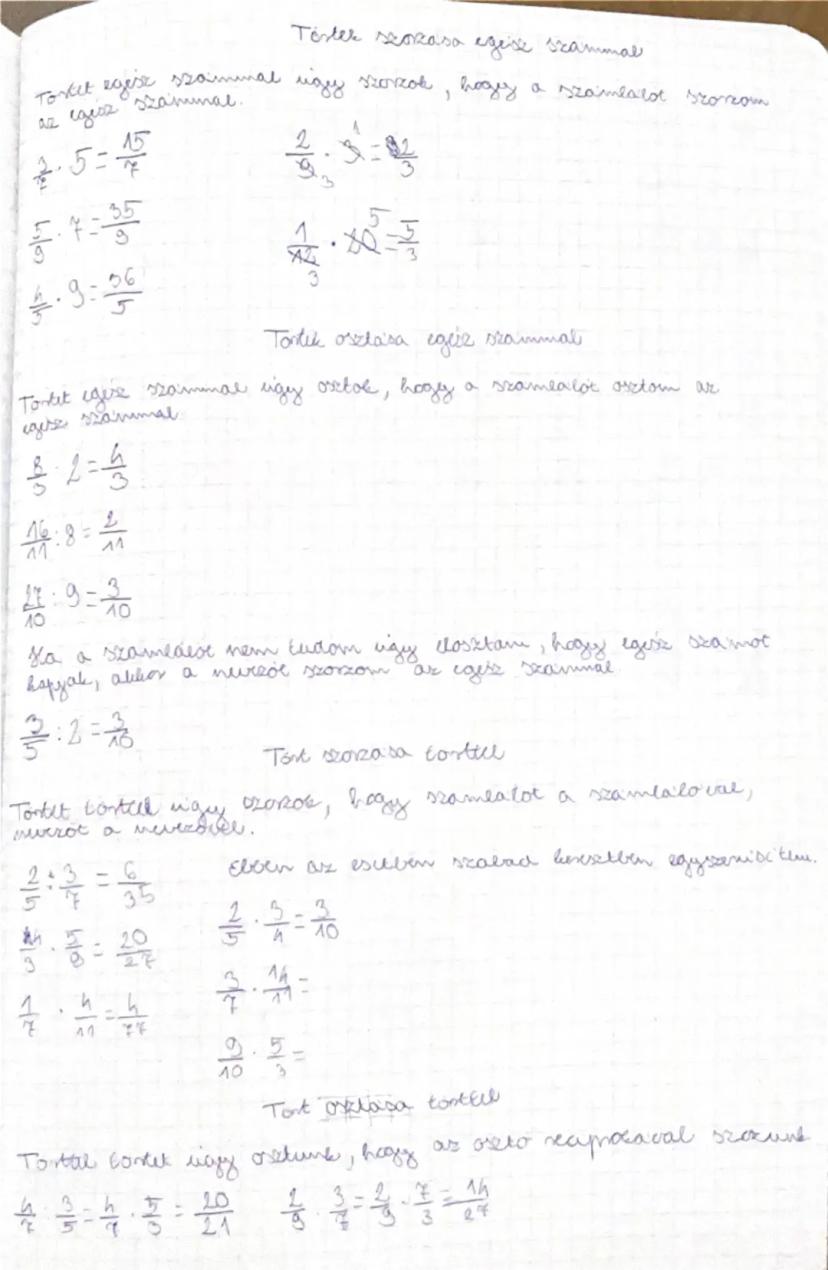 Törtek szorzása egész számmal
Törtet egész számmal úgy szorzok, hogy a számlálót szorzom
az egész számmal.
3/7 · 5 = 15/7    2/9 · 3 = 2/3
5/9 · 7 = 35/9    1/12 · 20 = 5/3
4/5 · 9 = 36/5
Törtek osztása egész számmal
Törtet egész számmal úgy osztok, hogy a számlálót osztom az
egész számmal
8/3 : 2 = 4/3
16/11 : 8 = 2/11
27/10 : 9 = 3/10
Ha a számlálót nem tudom úgy elosztani, hogy egész számot
kapjak, akkor a nevezőt szorzom az egész számmal
3/5 : 2 = 3/10
Tört szorzása törttel
Törtet törttel úgy szorzok, hogy számlálót a számlálóval,
nevezőt a nevezővel.
2/5 · 3/7 = 6/35    Ebben az esetben szabad keresztben egyszerűsíteni.
4/3 · 5/9 = 20/27    2/5 · 3/4 = 3/10
1/7 · 4/11 = 4/77    3/7 · 14/11 =
9/10 · 5/3 =
Tört osztása törttel
Törttel törtet úgy osztunk, hogy az osztó reciprokával szorzunk
4/7 : 3/5 = 4/7 · 5/3 = 20/21    2/9 : 3/7 = 2/9 · 7/3 = 14/27